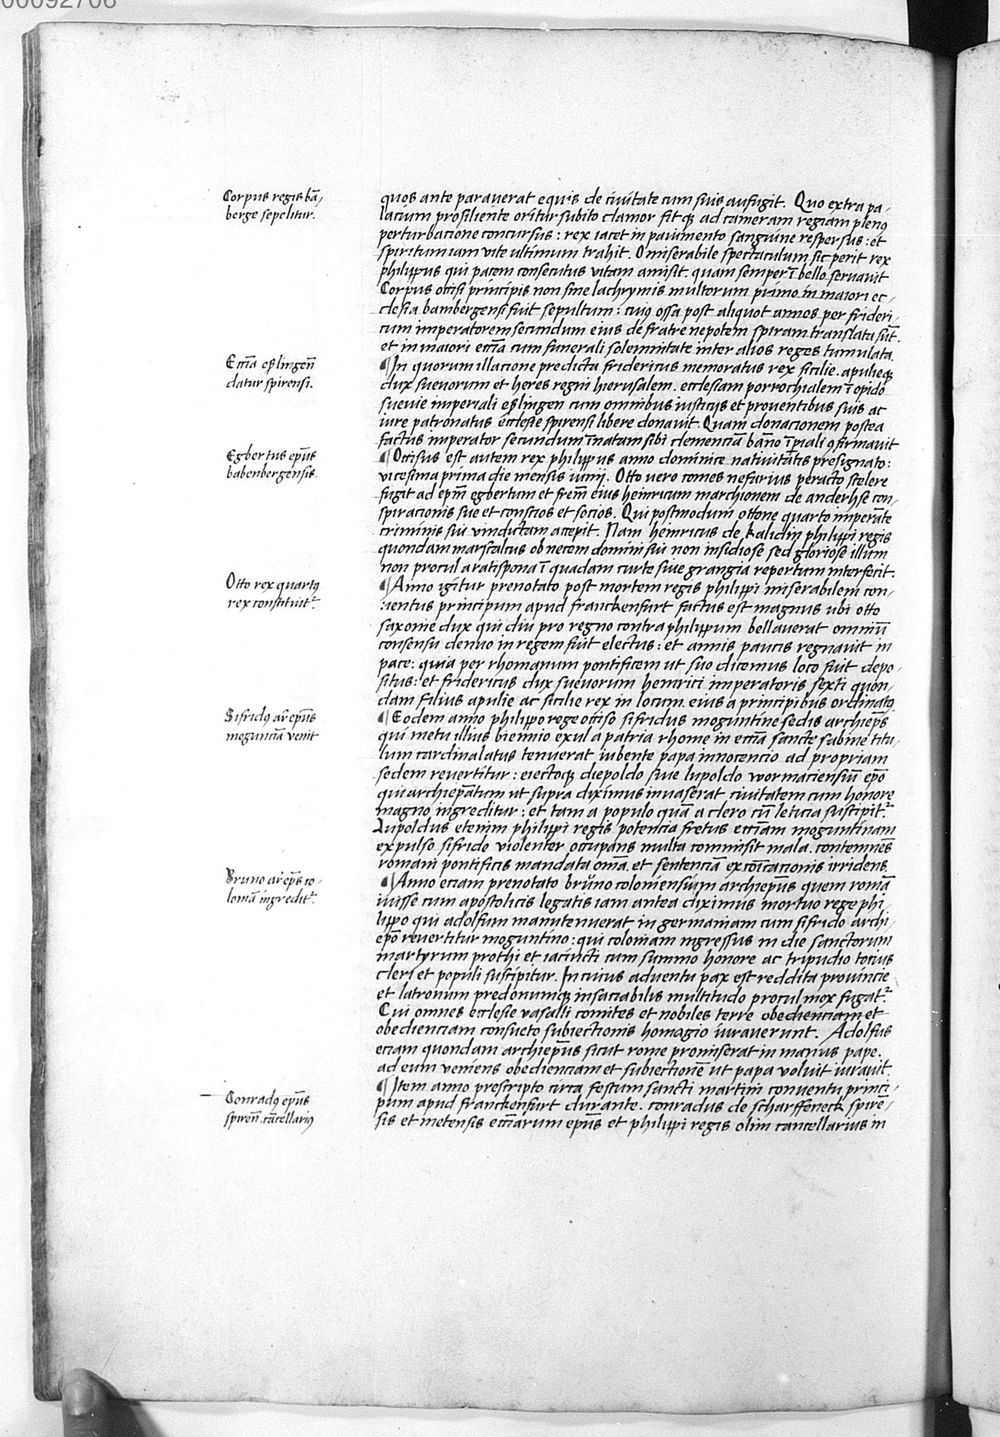 00092706
Corpus regis bā/
berge sepelitur.
quos ante paraverat equis de civitate cum suis aufugit. Quo extra pa-
latium prosiliente oritur subito clamor fitq; ad cameram regiam plenq
perturbacione concursus: rex iacet in pavimento sanguine respersus: et
spiritum iam vite ultimum trahit. O miserabile spectaculum sic perit rex
philippus qui pacem consecutus vitam amisit. quam semper ī bello servavit
Corpus occisi principis non sine lachrymis multorum primo in maiori ec-
clesia bambergensi fuit sepultum: cuiq ossa post aliquot annos per frideri-
cum imperatorem secundum eius de fratre nepotem spiram translata sūt.
et in maiori eccīa cum funerali solemnitate inter alios reges tumulata.
Eccīa eslingen̄
datur spirensi.
¶ In quorum illacione predicta fridericus memoratus rex sicilie. apulieq;
dux suevorum et heres regni hierusalem. ecclesiam porrochialem ī opido
suevie imperiali eslingen cum omnibus iusticijs et proventibus suis ac
iure patronatus ecclesie spirensi libere donavit. Quam donacionem postea
factus imperator secundum īnatam sibi clemenciā bān̄o īpiali ꝯfirmavit
Egbertus epūs
babenbergensis.
¶ Occisus est autem rex philippus anno dominice nativitātis presignato:
vicesima prima die mensis iunij. Otto vero comes nefarius peracto scelere
fugit ad epm̄ egbertum et frem̄ eius heinricum marchionem de anderhse con-
spiracionis sue et conscios et socios. Qui postmodum ottone quarto imperāte
criminis sui vindictam accepit. Nam heinricus de kalidin philippi regis
quondam marscalcus ob necem domini sui non insidiose sed gloriose illum
non procul a ratispona ī quadam curte sive grangia repertum interfecit.
Otto rex quartq
rex constituit᷑.
¶ Anno igitur prenotato post mortem regis philippi miserabilem con-
ventus principum apud franckenfurt factus est magnus ubi otto
saxonie dux qui diu pro regno contra philippum bellaverat omniū
consensu denuo in regem fuit electus: et annis paucis regnavit in
pace: quia per rhomanum pontificem ut suo dicemus loco fuit depo-
situs: et fridericus dux suevorum heinrici imperatoris sexti quon-
dam filius apulie ac sicilie rex in locum. eius a principibus ordinatq
Sifridq ar̄epūs
moguncīa venit
¶ Eodem anno philippo rege occiso sifridus moguntine sedis archiep̄s
qui metu illius biennio exul a patria rhome in eccīa sancte sabine titu-
lum cardinalatus tenuerat iubente papa innocencio ad propriam
sedem revertitur: eiectoq; diepoldo sive lupoldo wormaciensiū epō
qui archiep̄atum ut supra diximus invaserat civitatem cum honore
magno ingreditur: et tam a populo quā a clero cū leticia suscipit᷑.
Lupoldus etenim philippi regis potencia fretus eccīam moguntinam
expulso sifrido violenter occupans multa commisit mala. contemnēs
romani pontificis mandata omīa. et sentenciā excōicacionis irridens.
Bruno ar̄ep̄s co-
loniā ingredit᷑.
¶ Anno eciam prenotato bruno coloniensium archiepūs quem romā
iuisse cum apostolicis legatis iam antea diximus mortuo rege phi-
lippo qui adolfum manutenuerat in germaniam cum sifrido archi-
epō revertitur moguntino: qui coloniam ingressus in die sanctorum
martyrum prothi et iacincti cum summo honore ac tripudio tocius
cleri et populi suscipitur. In cuius adventu pax est reddita provincie
et latronum predonumq; insaciabilis multitudo procul mox fugat᷑.
Cui omnes ecclesie vasalli comites et nobiles terre obedienciam et
obedienciam consueto subiectionis homagio iuraverunt. Adolfus
eciam quondam archiepūs sicut rome promiserat in manus pape.
ad eum veniens obedienciam et subiectionē ut papa voluit iuravit.
Conradq epūs
spiren̄. cācellariq
¶ Item anno prescripto circa festum sancti martini conventu princi-
pum apud franckenfurt durante. conradus de scharffeneck spirē-
sis et metensis eccīarum epūs et philippi regis olim cancellarius in